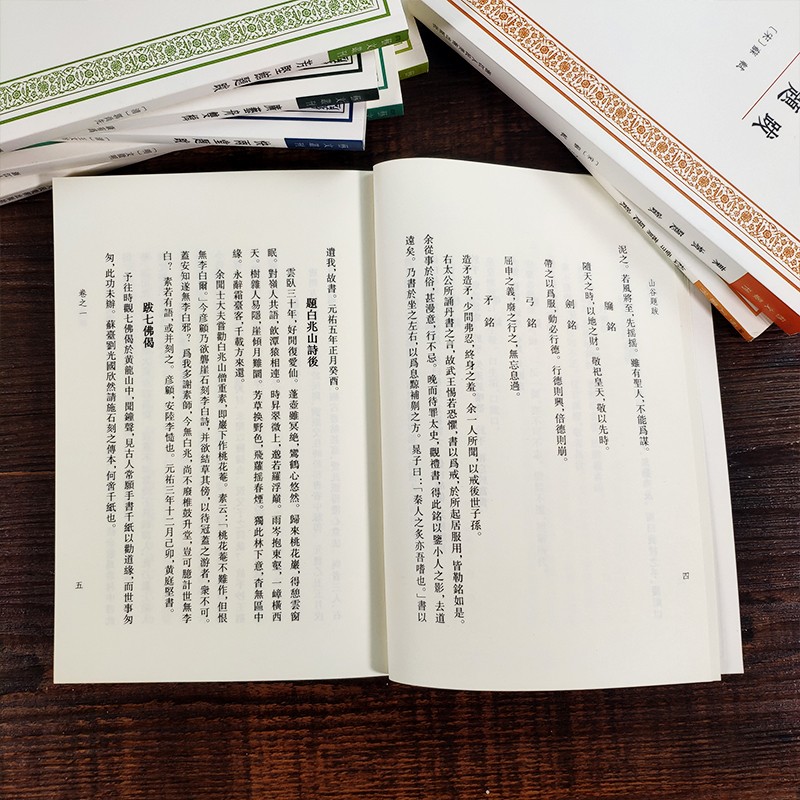 山谷題跋
泥之。若風將至，先搖搖。雖有聖人，不能爲謀。
牖銘
隨天之時，以地之財。敬祀皇天，敬以先時。
劍銘
帶之以爲服，動必行德。行德則興，倍德則崩。
弓銘
屈申之義，廢之行之，無忘息過。
矛銘
造矛造矛，少間弗忍，終身之羞。余一人所聞，以戒後世子孫。
右太公所誦丹書之言，故武王惕若恐懼，書以爲戒，於所起居服用，皆勒銘如是。
余從事於俗，甚漫意，行不忌。晚而待罪太史，觀禮書，得此銘以鑒小人之影，去道
遠矣。乃書於坐之左右，以爲息黥補劓之方。晁子曰：「秦人之炙亦吾嗜也。」書以
四
遺我，故書。元祐五年正月癸酉。
題白兆山詩後
雲臥三十年，好閑復愛仙。蓬壺雖冥絶，鸞鶴心悠然。歸來桃花巖，得憩雲窗
眠。對嶺人共語，飲潭猿相連。時昇翠微上，邈若羅浮巔。雨岑抱東壑，一嶂橫西
天。樹雜人易隱，崖傾月難圓。芳草換野色，飛蘿搖春煙。獨此林下意，杳無區中
緣。永辭霜臺客，千載方來還。
余聞士大夫嘗勸白兆山僧重素，即巖下作桃花菴。素云：「桃花菴不難作，但恨
無李白爾。」今彦顧乃欲礱崖石刻李白詩，并欲結草其傍，以待冠蓋之游者，衆不可。
蓋安知遂無李白邪？爲我多謝素師，今無白兆，尚不廢椎鼓升堂，豈可臆計世無李
白？素若有語，或并刻之。彦顧，安陸李愭也。元祐三年十二月己卯，黃庭堅書。
跋七佛偈
予往時觀七佛偈於黃龍山中，聞鐘聲，見古人常願手書千紙以勸道緣，而世事匆
匆，此功未辦。蘇臺劉光國欣然請施石刻之傳本，何啻千紙也。
卷之一
五
題跋
〔宋〕蘇軾